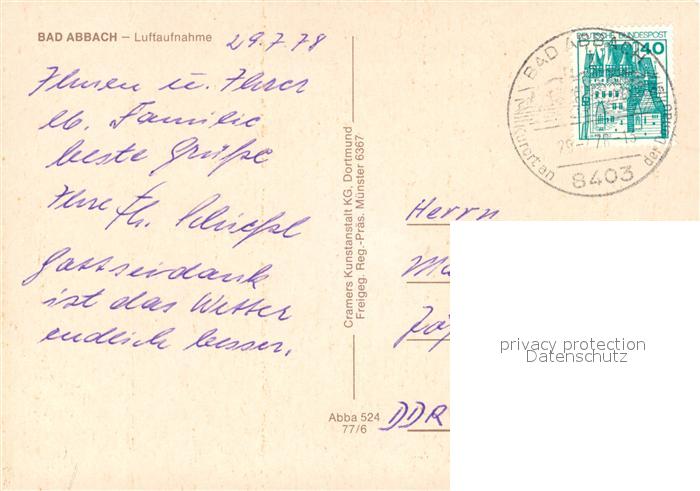 BAD ABBACH – Luftaufnahme
29.7.78
Ihnen u. Ihrer
lb. Familie
beste Grüße
Ihre Th.
Gottseidank
ist das Wetter
endlich besser.
Cramers Kunstanstalt KG, Dortmund
Freigeg. Reg.-Präs. Münster 6367
Abba 524
77/6
DEUTSCHE BUNDESPOST
40
BAD ABBACH
29.-7.78-15
8403
Herrn
DDR
privacy protection
Datenschutz